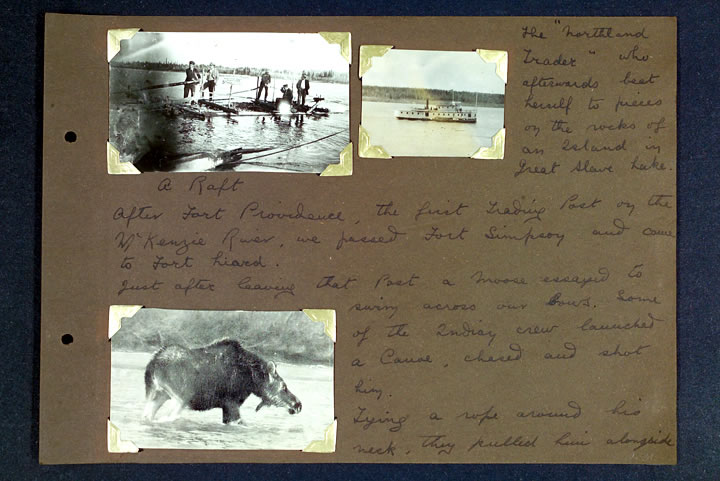 The "Northland
Trader" who
afterwards beat
herself to pieces
on the rocks of
an Island in
Great Slave Lake.
A Raft
After Fort Providence, the first Trading Post on the
McKenzie River, we passed Fort Simpson and came
to Fort Liard.
Just after leaving that Post a Moose essayed to
swim across our bows. Some
of the Indian crew launched
a Canoe, chased and shot
him.
Tying a rope around his
neck, they pulled him alongside